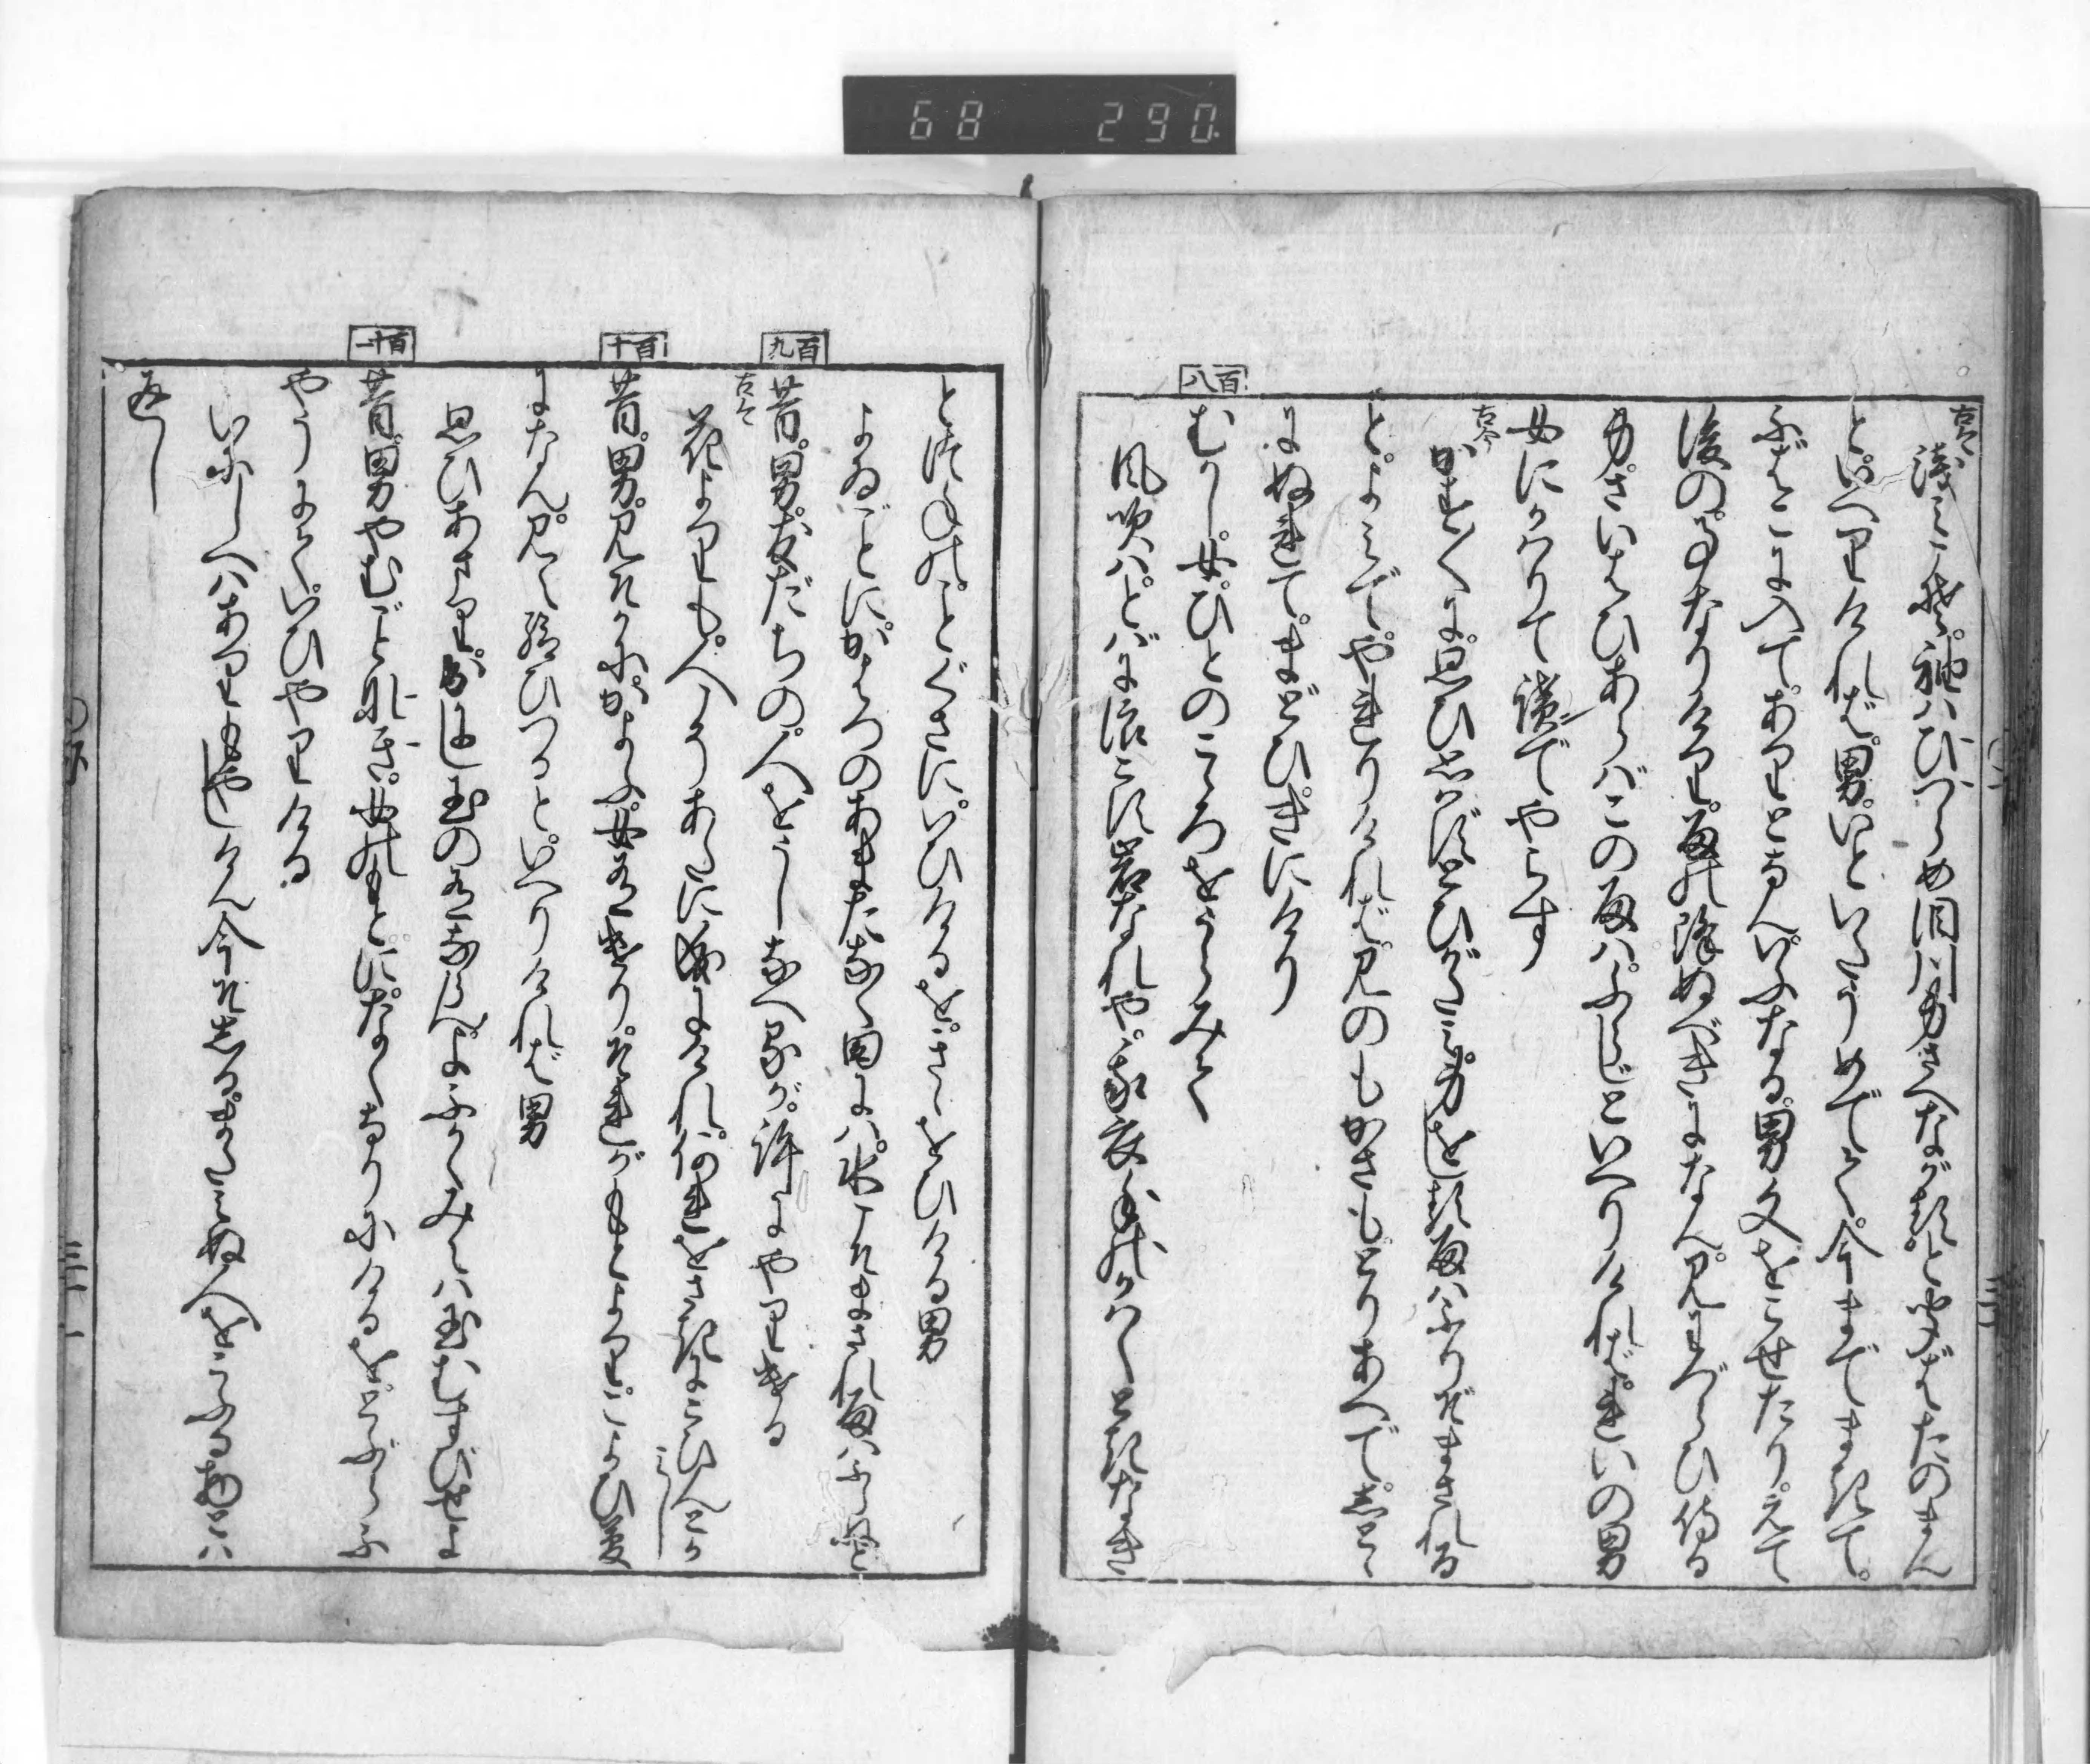 68 290
古今
浅みこそ袖ハひづらめ泪川身さへながると聞ばたのまん
といへりければ男いといたうめでゝ今までまきて
ふばこに入てありとなんいふなる男文をこせたりえて
後の事なりけり雨の降ぬべきになん見わづらひ侍る
身さいはひあらバこの雨ハふらじといへりければれいの男
女にかはりて讀でやらす
古今
かず〱に思ひおもはずとひがたみ身をしる雨ハふりぞまされる
とよみてやれりければみのもかさもとりあへでしとゝ
にぬれてまどひきにけり
百八
むかし女ひとのこゝろをうらみて
風吹ハとバに浪こす岩なれや我衣手のかはくときなき
とつねのことぐさにいひけるをきゝをひける男
よゐごとにかはづのあまたなく田にハ水こそまされ雨ハふらねど
百九
昔男友だちの人をうしなへるが許にやりける
古今
花よりも人こそあだに成にけれ何れをさきにこひんとか
みし
百十
昔男みそかにかよふ女有けりそれがもとよりこよひ夢
になん見え給ひつるといへりければ男
思ひあまり出にし玉の有ならん夜ふかくみえハ玉むすびせよ
百十一
昔男やむごとなき女のもとになくなりにけるをとぶらふ
やうにていひやりける
いにしへハありもやしけん今ぞしるまだみぬ人をこふる物とハ
返し